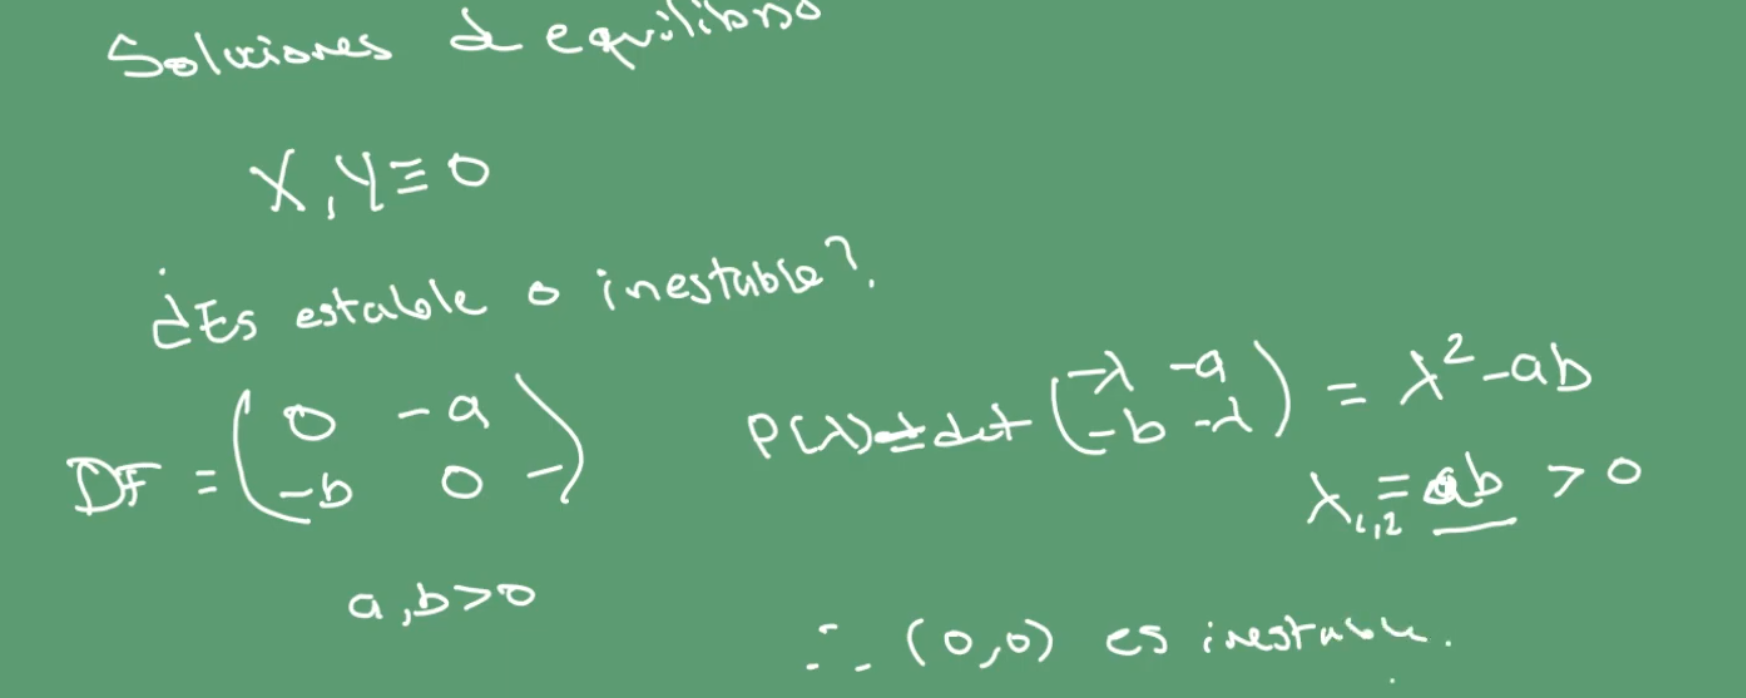 Soluciones d equilibrio
X, Y ≡ 0
¿Es estable o inestable?.
DF = ( 0 -a ; -b 0 - )
P(λ) = det ( -λ -a ; -b -λ ) = λ² - ab
λ₁,₂ = ab > 0
a, b > 0
∴ (0,0) es inestable.